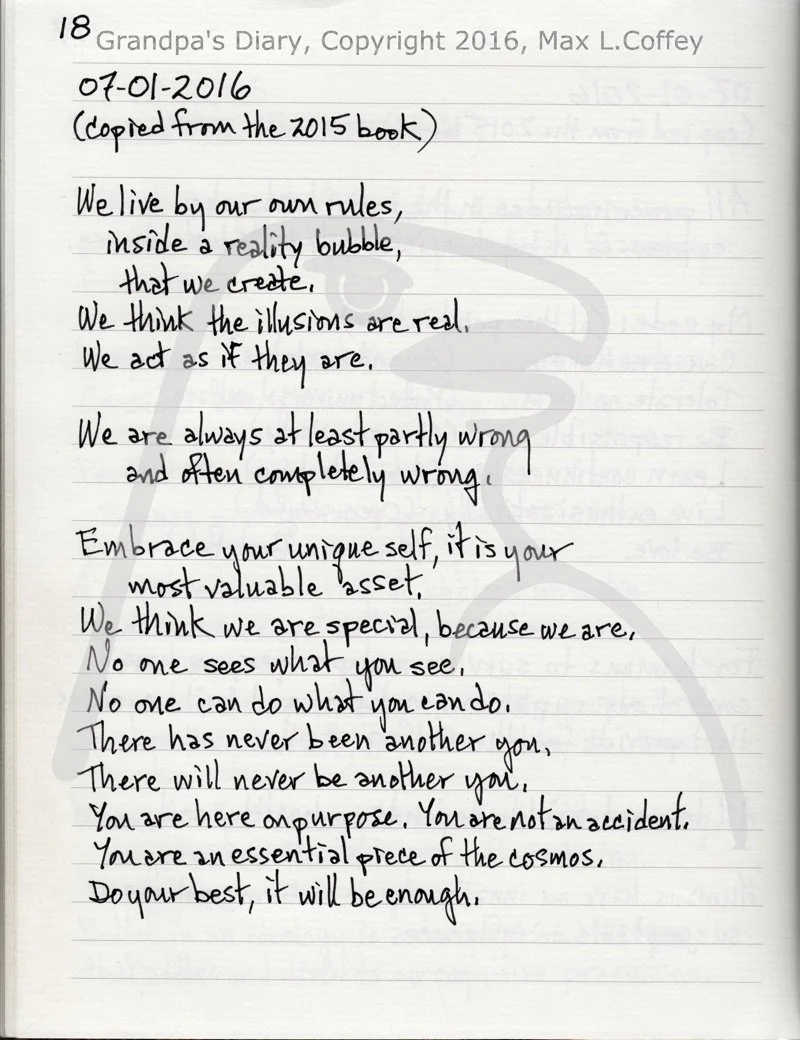 18
Grandpa's Diary, Copyright 2016, Max L.Coffey
07-01-2016
(copied from the 2015 book)
We live by our own rules,
inside a reality bubble,
that we create.
We think the illusions are real.
We act as if they are.
We are always at least partly wrong
and often completely wrong.
Embrace your unique self, it is your
most valuable asset.
We think we are special, because we are.
No one sees what you see.
No one can do what you can do.
There has never been another you.
There will never be another you.
You are here on purpose. You are not an accident.
You are an essential piece of the cosmos.
Do your best, it will be enough.